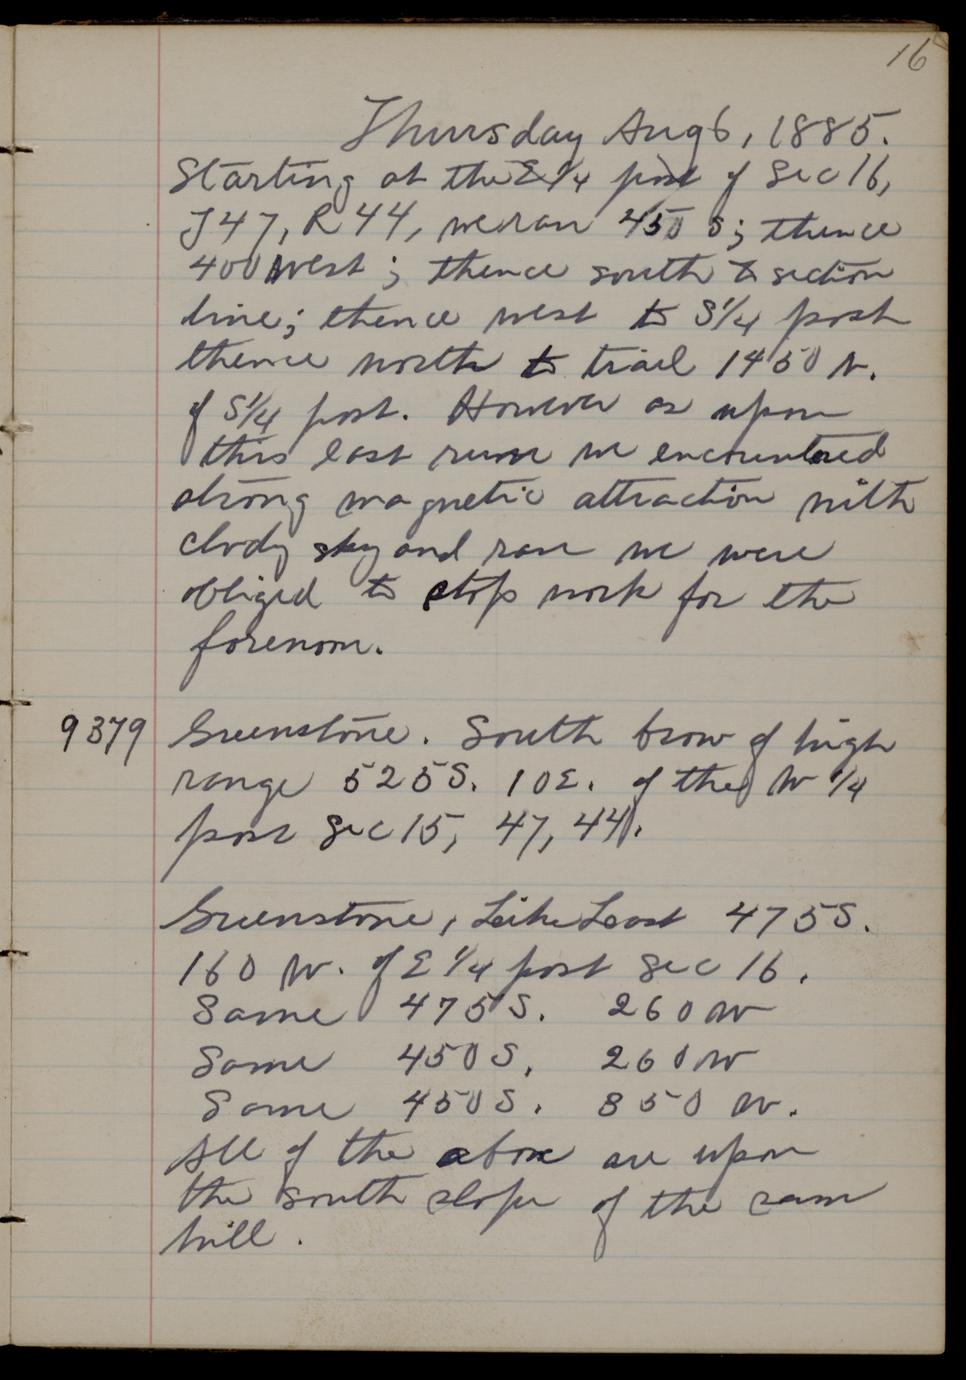 16
Thursday Aug 6, 1885.
Starting at the E 1/4 post of Sec 16,
T 47, R 44, we ran 450 S; thence
400 West; thence south to section
line; thence west to S 1/4 post
thence north to trail 1450 N.
of S 1/4 post. However as upon
this last run we encountered
strong magnetic attraction with
clody sky and ran we were
obliged to stop work for the
forenoon.
9379 Greenstone. South brow of high
range 525 S. 10 E. of the W 1/4
post Sec 15, 47, 44.
Greenstone, Like Last 475 S.
160 W. of E 1/4 post Sec 16.
Same 475 S. 260 W
Same 450 S. 260 W
Same 450 S. 350 W.
All of the above are upon
the south slope of the same
hill.